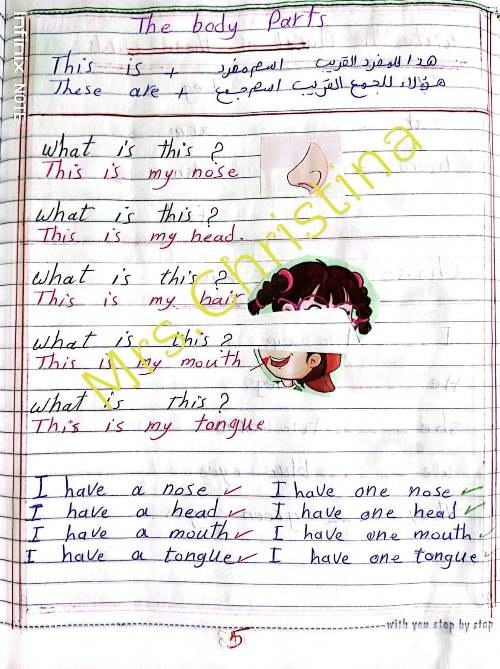 The body Parts
This is + اسم مفرد هذا للمفرد القريب
These are + اسم جمع هؤلاء للجمع القريب
What is this ?
This is my nose
What is this ?
This is my head.
What is this ?
This is my hair
What is this ?
This is my mouth
What is This ?
This is my tongue
Mrs. Christina
I have a nose ✓ I have one nose ✓
I have a head ✓ I have one head ✓
I have a mouth ✓ I have one mouth ✓
I have a tongue ✓ I have one tongue ✓
with you step by step
5
Infinix NOTE